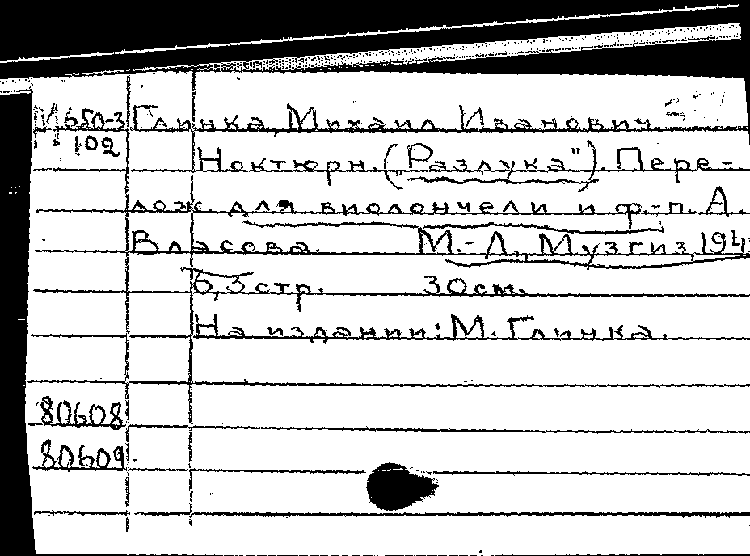 М650-3 Глинка, Михаил Иванович
102
Ноктюрн. („Разлука"). Пере-
лож. для виолончели и ф.-п. А.
Власова. М.-Л., Музгиз, 194
6, 3 стр. 30 см.
На издании: М. Глинка.
80608
80609